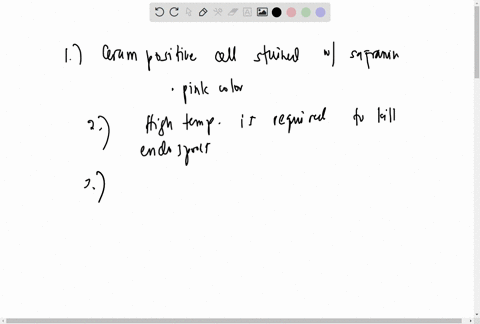 1.) Gram positive cell stained w/ safranin
· pink color
2.) High temp. is required to kill
endospores
3.)